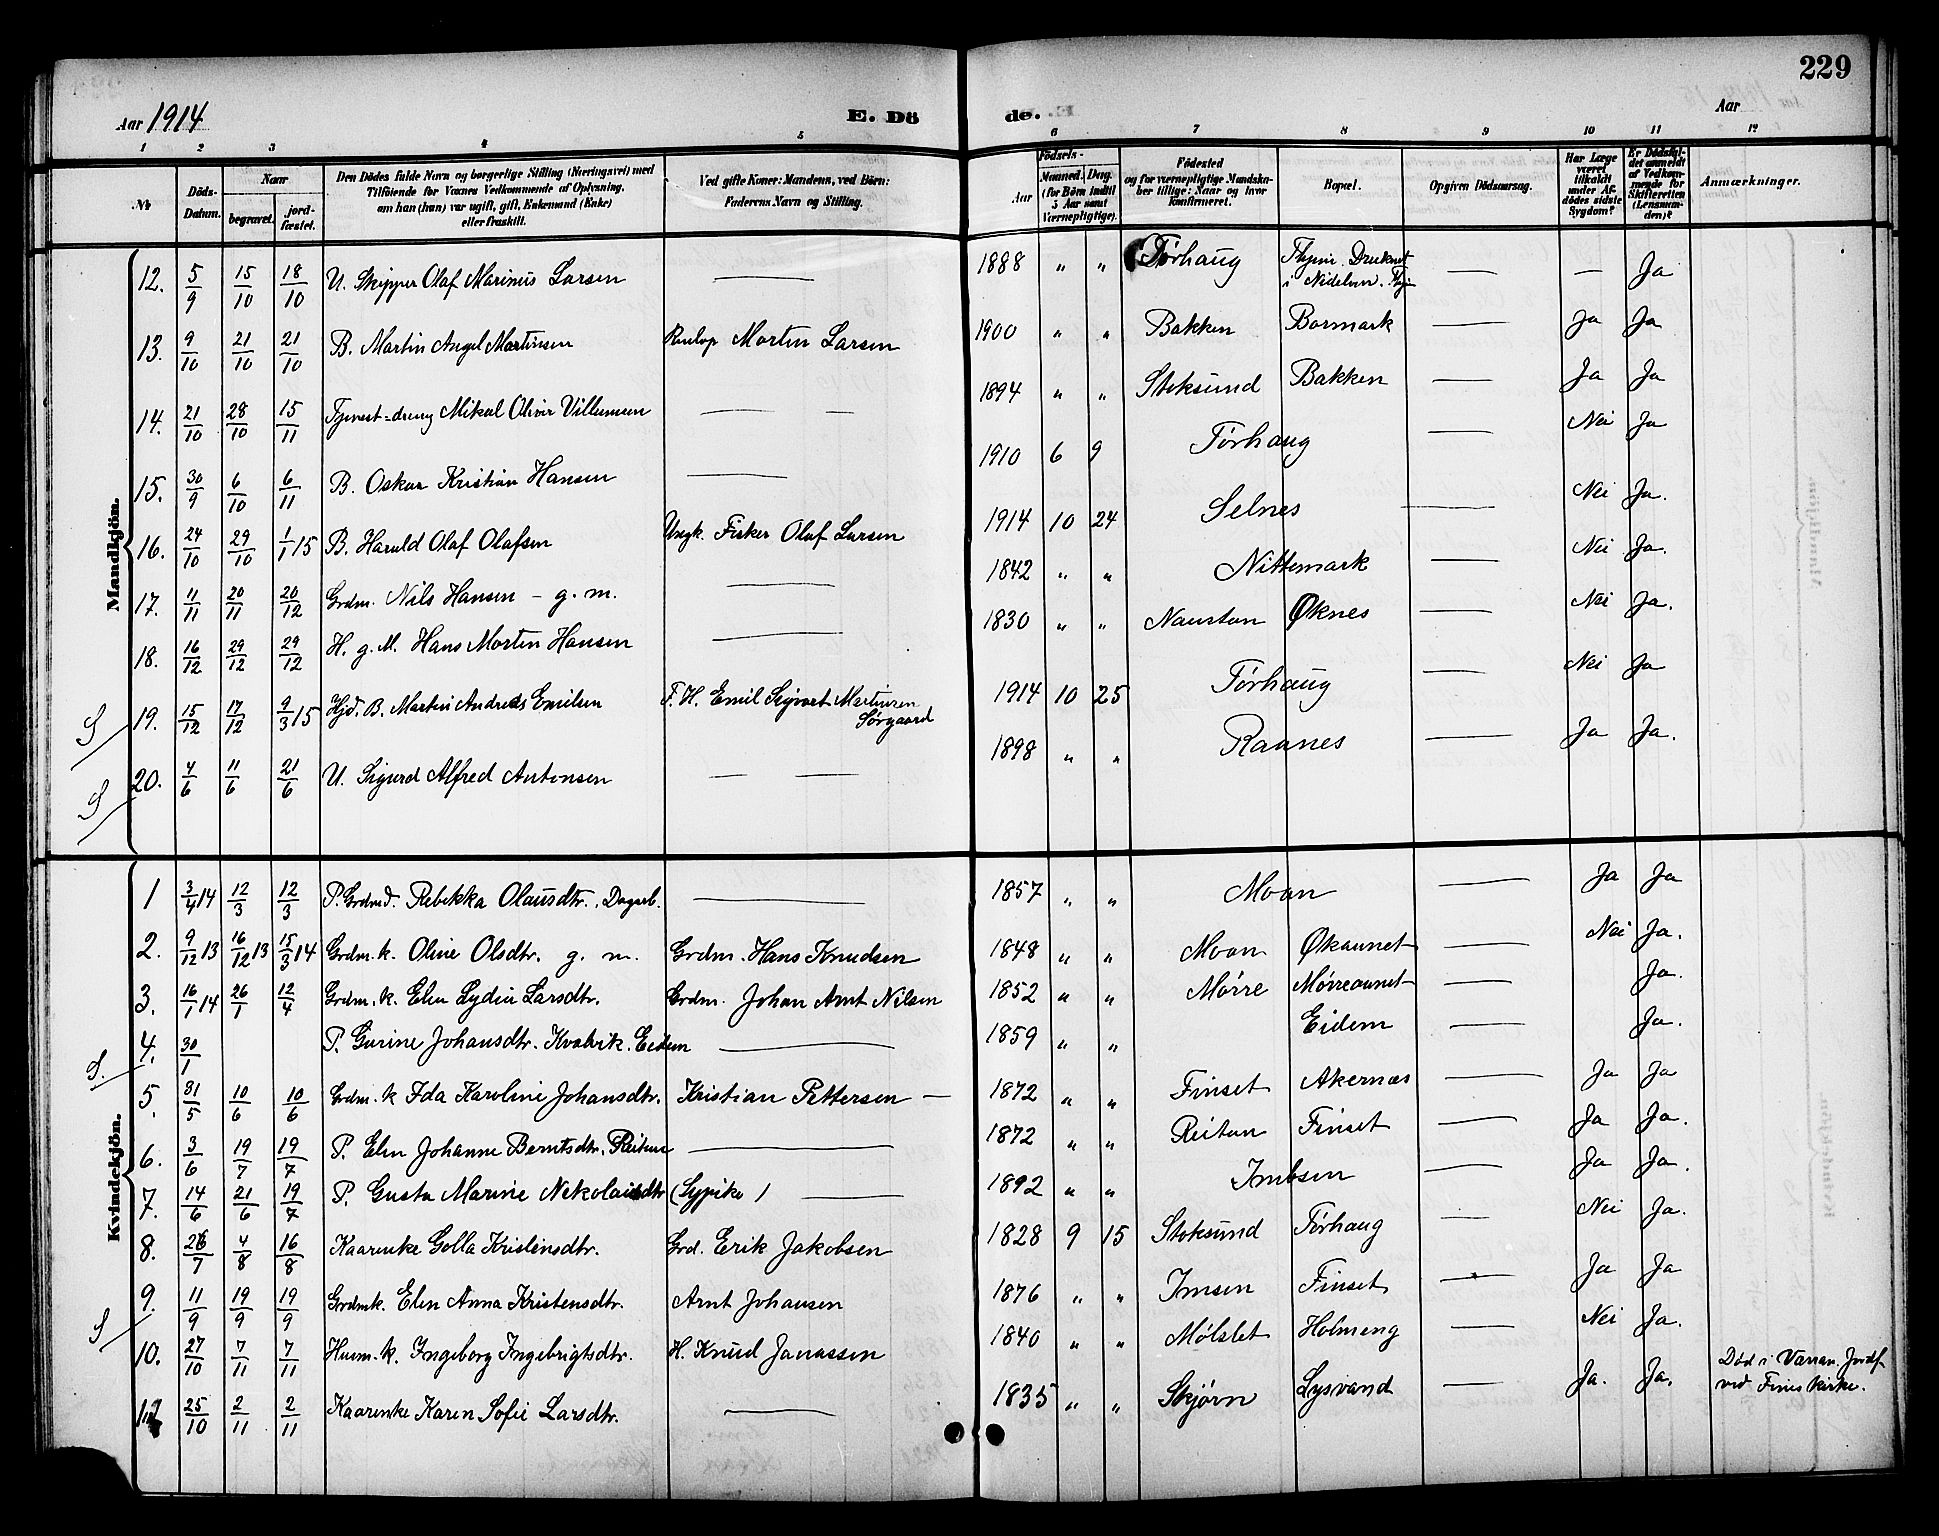 229
Aar 1914
E. Dö
de.
Aar
1 2 3 4 5 6 7 8 9 10 11 12
№
Döds-Datum.
Naar
begravet.
jord-fæstet.
Den Dödes fulde Navn og borgerlige Stilling (Næringsvei) med
Tilföiende for Voxnes Vedkommende af Oplysning,
om han (hun) var ugift, gift, Enkemand (Enke)
eller fraskilt.
Ved gifte Koner: Mandens, ved Börn:
Faderens Navn og Stilling.
Födsels-
Aar
Maaned. Dag.
(for Börn indtil
5 Aar samt
Værnepligtige).
Födested
og for værnepligtige Mandska-
ber tillige: Naar og hvor
konfirmeret.
Bopæl.
Opgiven Dödsaarsag.
Har Læge
været
tilkaldt
under Af-
dödes sidste
Sygdom?
Er Dödsfal-
det anmeldt
af Vedkom-
mende for
Skifteretten
(Lensman-
den)?
Anmærkninger.
Mandkjön.
12. 5/9 15/10 18/10 U. Skipper Olaf Marinus Larsen — 1888 " " Tørhaug i Nidelven. — — Ja
13. 9/10 21/10 21/10 B. Martin Angel Martinsen Morten Larsen 1900 " " Bakken Bormark — Ja Ja
14. 21/10 28/10 15/11 Tjenest-dreng Mikal Oliver Villumsen — — 1894 " " Stoksund Bakken — Ja Ja
15. 30/9 6/10 6/11 B. Oskar Kristian Hansen — 1910 6 9 Tørhaug — Nei Ja
16. 24/10 29/10 1/1 15 B. Harald Olaf Olafsen Ungk. Fisker Olaf Larsen 1914 10 24 Selnes — Nei Ja.
17. 11/11 20/11 20/12 Grdm. Nils Hansen – g. m. — 1842 " " Nittemark — Nei Ja.
18. 16/12 29/12 29/12 H. g. M. Hans Morten Hansen — 1830 " " Naustan Øknes — Nei Ja.
S 19. 15/12 17/12 9/3 15 Hjd. B. Martin Andreas Emilsen F. H. Emil Sigvart Martinsen
Sørgaard 1914 10 25 Tørhaug — Nei Ja
S 20. 4/6 11/6 21/6 U. Sigurd Alfred Antonsen — — 1898 " " Raanes — Ja Ja.
Kvindekjön.
1 3/4 14 12/3 12/3 P. Grdmd. Rebekka Olausdtr., Dagarb. — 1857 " " Moan — Ja Ja
2. 9/12 13 16/12 13 15/3 14 Grdm. k. Oline Olsdtr. g. m. Grdm. Hans Knudsen 1848 " " Moan Økaunet — Nei Ja.
3. 16/1 14 26/1 12/4 Grdm. k. Elen Lydia Larsdtr. Grdm. Johan Arnt Nilsen 1852 " " Mørre Mørreaunet — Ja.
S. 4. 30/1 P. Gurine Johansdtr. Kvalvik. Eidem — 1859 " " Eidem — Ja.
5. 31/5 10/6 10/6 Grdm. k Ida Karoline Johansdtr. Kristian Pettersen — 1872 " " Finset Akernæs — Ja Ja
6. 3/6 19/7 19/7 P. Elen Johanne Berntsdtr. Reitan — 1872 " " Reitan Finset — Ja Ja.
7. 14/6 21/6 19/7 P. Gusta Marine Nekolaisdtr (Sypike) — 1892 " " Imbsen — Ja Ja.
8. 26/7 4/8 16/8 Kaarenke Golla Kristensdtr. Grd. Erik Jakobsen 1828 9 15 Stoksund Tørhaug — Nei Ja.
S 9. 11/9 19/9 19/9 Grdmk. Elen Anna Kristensdtr. Arnt Johansen 1876 " " Imsen Finset — Ja Ja
10. 27/10 7/11 7/11 Husm. k. Ingeborg Ingebrigtsdtr. H. Knud Janassen 1840 " " Mølslet Holmeng — Nei Ja.
25/10 2/11 2/11 Kaarenke Karen Sofie Larsdtr. — 1835 " " Skjørn Lysvand — Ja. Ja. Død i Vanan. Jordf.
ved Fines kirke.